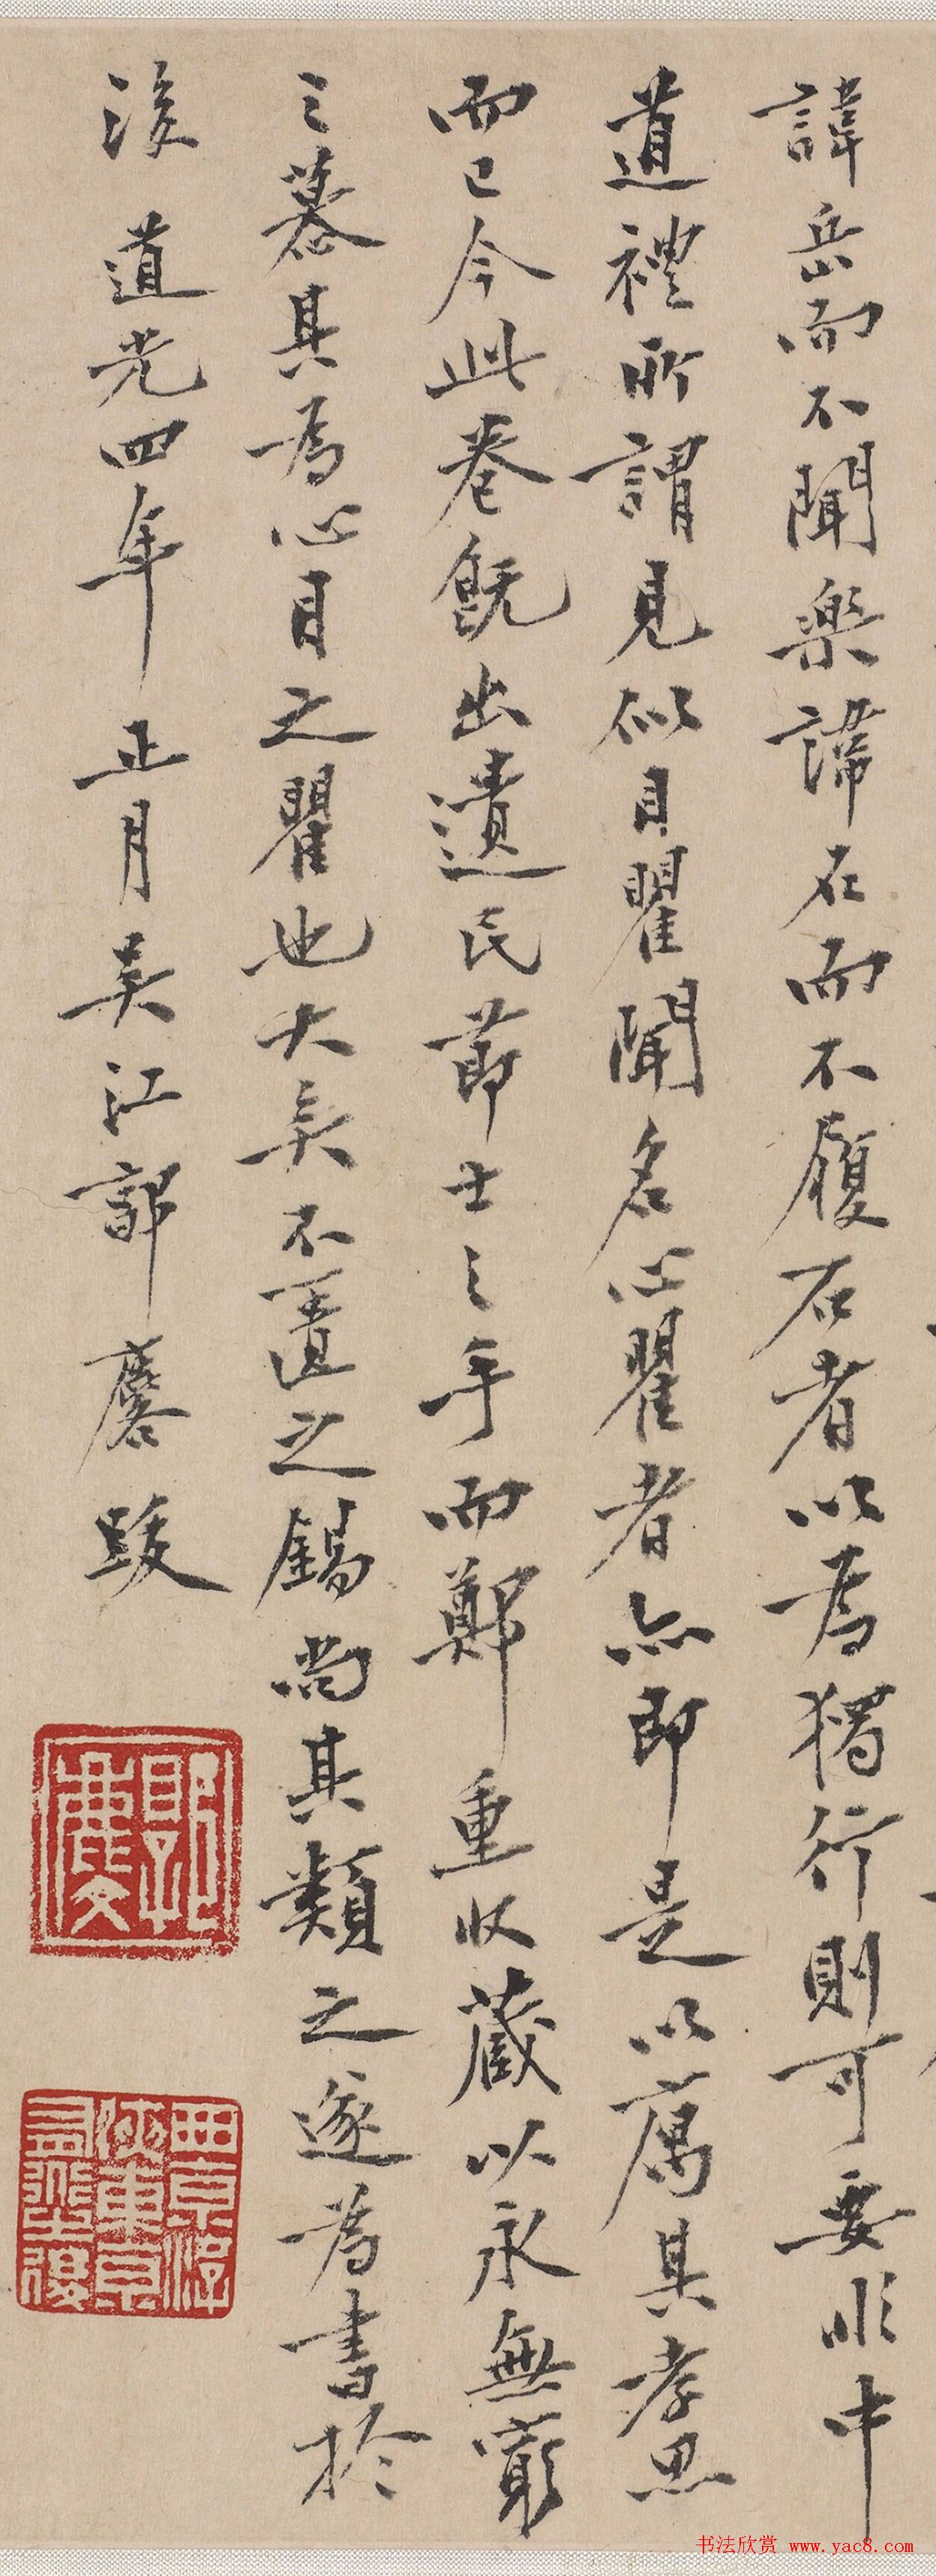 諱岳而不聞樂諱石而不履石者以爲獨行則可要非中
道禮所謂見似目瞿聞名心瞿者亦即是以厲其孝思
而已今此卷既出遺民節士之手而鄭重收藏以永無窮
之慕其爲心目之瞿也大矣不匱之錫尚其類之遂爲書於
後 道光四年正月吳江郭麐跋
書法欣赏 www.yac8.com